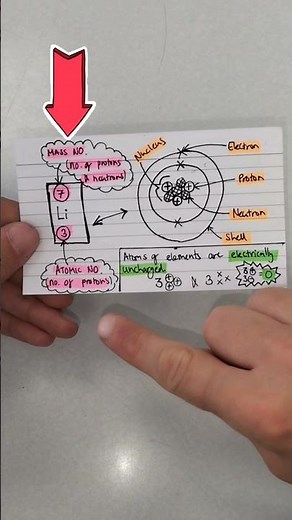 MASS NO.
(no. of protons
& neutrons)
7
Li
3
ATOMIC NO.
(no. of protons)
Nucleus
Electron
Proton
Neutron
Shell
Atoms of elements are electrically
uncharged
3
3